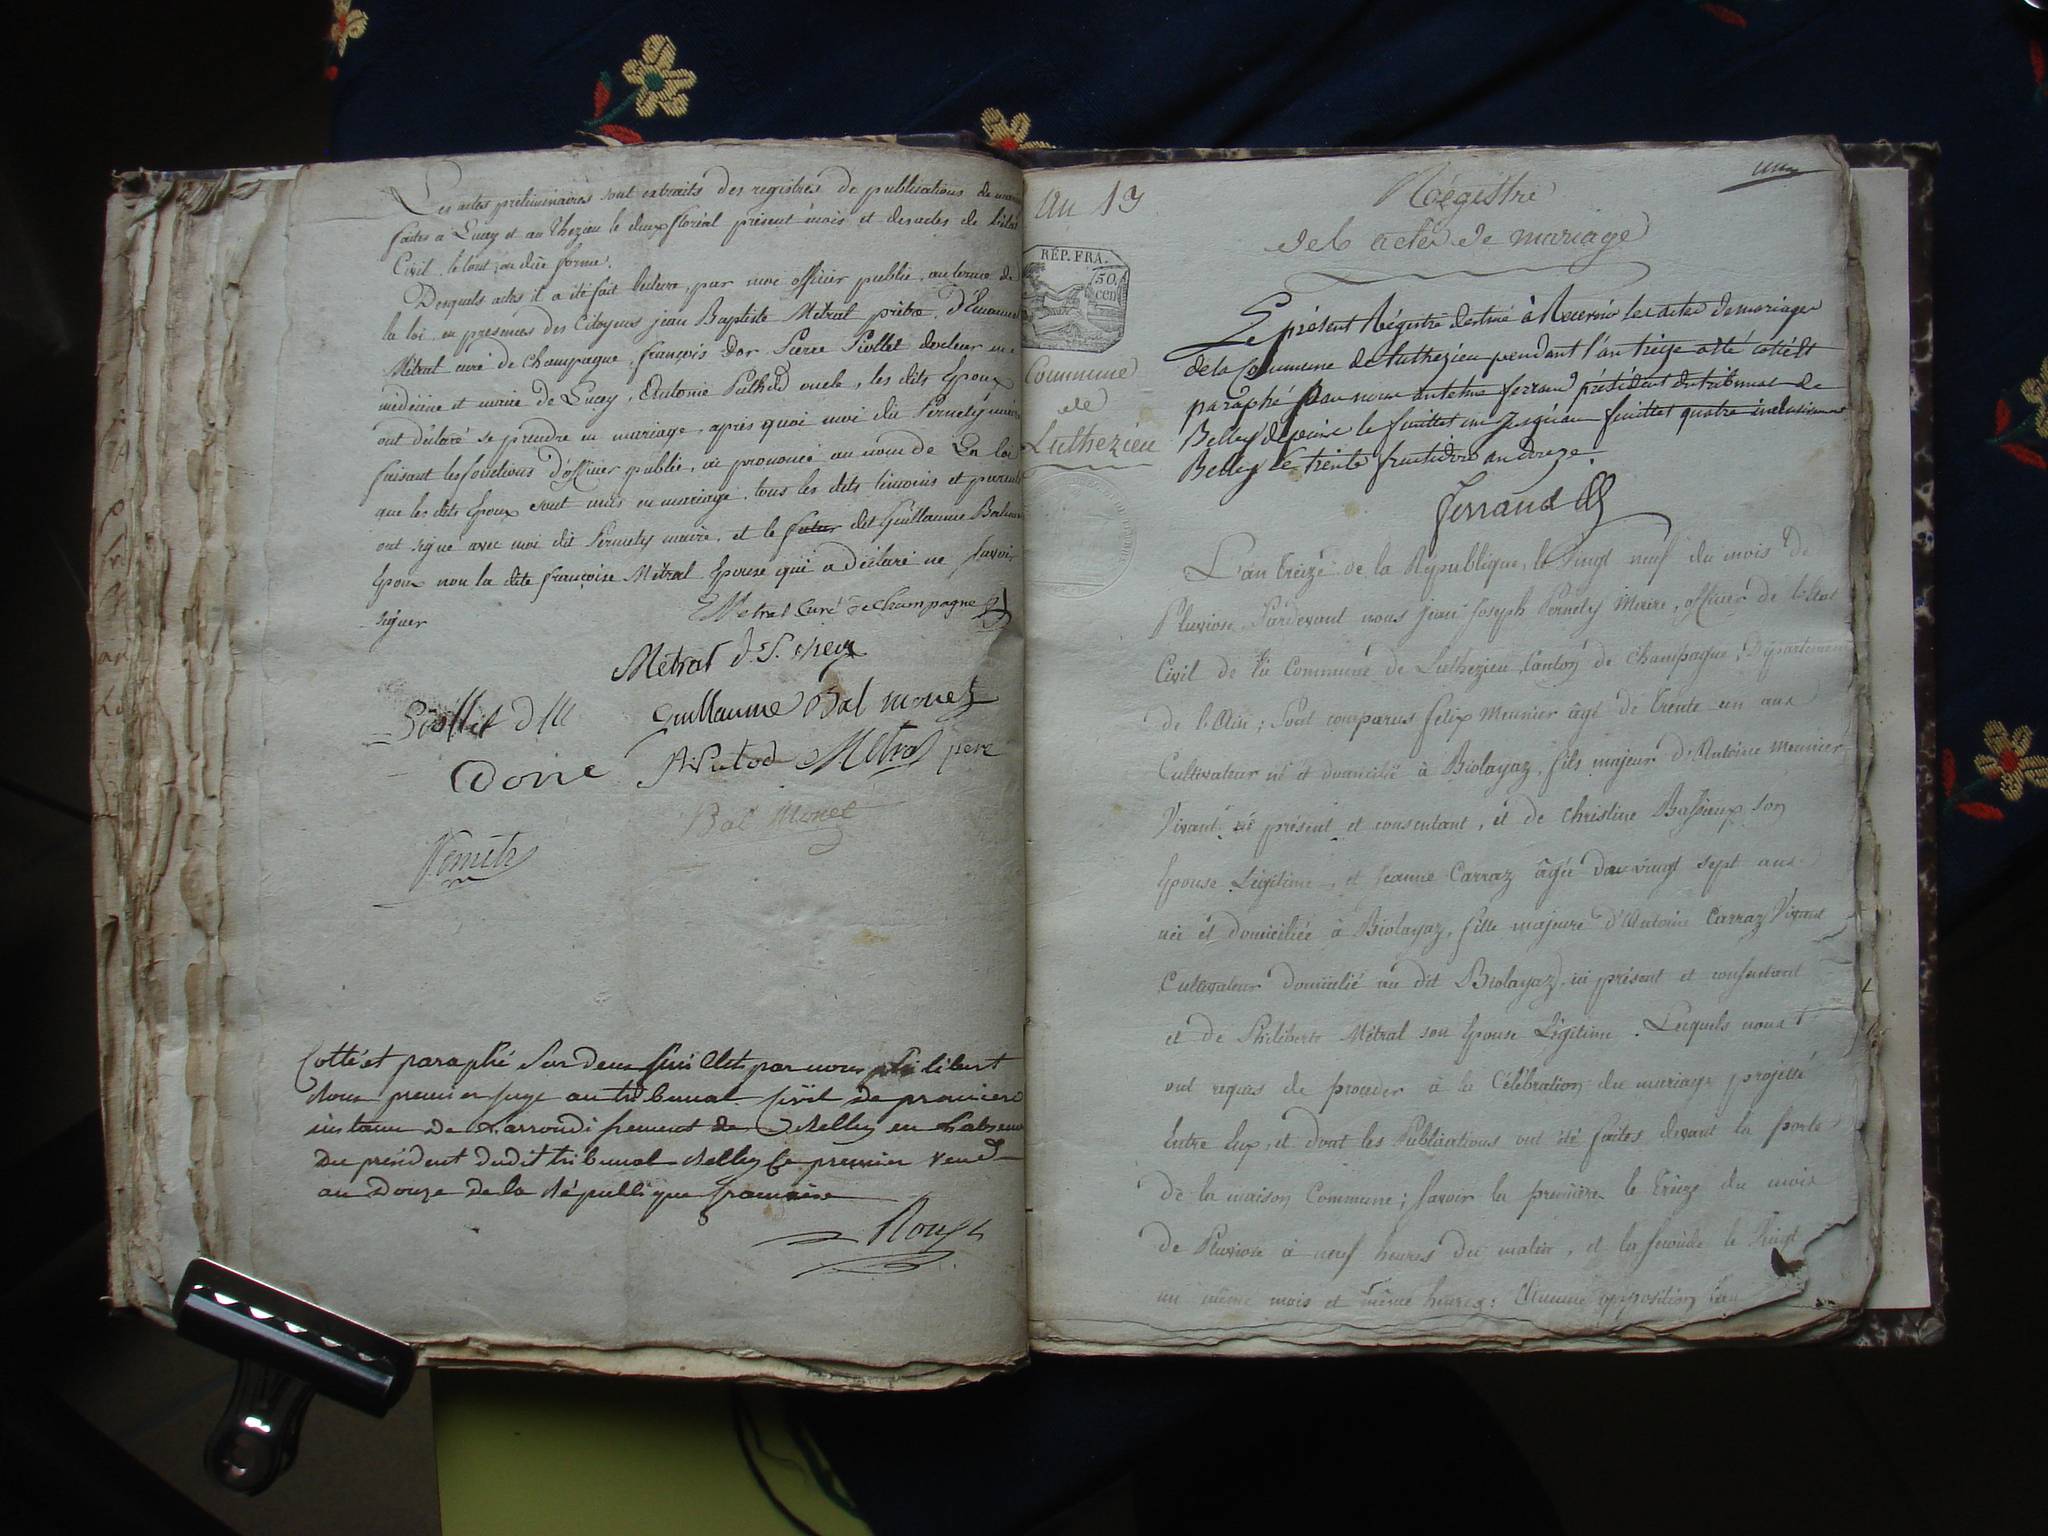 Les actes preliminaires sont extraits des registres de publications de
faites a Lucey et au Thezieu le deux floréal présent mois et des actes de l'état
Civil, le tout en düe forme.
Desquels actes il a été fait lecture, par moi officier public, au terme de
la loi en présences des Citoyens jean Baptiste Métral prêtre, d'
Métral curé de Champagne, françois dor Pierre Piollet docteur en
médecine et maire de Lucey, Antoine oncle, les dits Epoux
ont déclaré se prendre en mariage, après quoi moi dit Pernety maire
faisant les fonctions d'officier public, ai prononcé au nom de La loi
que les dits Epoux sont unis en mariage, tous les dits témoins et parents
ont signé avec moi dit Pernety maire, et le futur dit Guillaume
Epoux non la dite françoise Métral Epouse qui a déclaré ne savoir
signer
Metral Curé de champagne
Métral
Piollet
Guillaume Bal monet
Métral pere
Bal Monet
Cotté et paraphé sur deux feuillets par nous philibert
Roux premier juge au tribunal Civil de premiere
instance de l'arrondissement de Belley en l'absence
du président dudit tribunal Belley le premier vend
an Douze de la République francaise
Roux
un
An 13
Régistre
des actes de mariage
RÉP. FRA.
50 cen
Commune
de
Luthezieu
Le présent Régistre destiné à Recevoir les actes de mariage
de la Commune de Luthezieu pendant l'an treize a été cotté et
paraphé par nous antelme ferrand président du tribunal de
Belley depuis le feuillet un jusqu'au feuillet quatre inclusivement
Belley le trente fructidor an douze.
Ferrand
L'an treize de la République, le Vingt neuf du mois de
Pluviose Pardevant nous jean joseph Pernety Maire, officier de l'état
Civil de la Commune de Luthezieu, Canton de Champagne, Département
de l'Ain; Sont comparus felix Meunier âgé de trente un ans
Cultivateur né et domicilié à Biolayaz, fils majeur d'Antoine Meunier
Vivant ici présent et consentant, et de Christine Bassieux son
Epouse Légitime, et jeanne Carraz âgée de vingt sept ans
née et domiciliée à Biolayaz, fille majeure d'Antoine Carraz Vivant
Cultivateur domicilié au dit Biolayaz, ici présent et consentant
et de Philiberte Métral son Epouse Légitime. Lesquels nous
ont requis de proceder à la Célébration du mariage projetté
Entre Eux, et dont les Publications ont été faites devant la porte
de la maison Commune; savoir la premiere le treize du mois
de Pluviose à neuf heures du matin, et la seconde le Vingt
un même mois et même heures: Aucune opposition